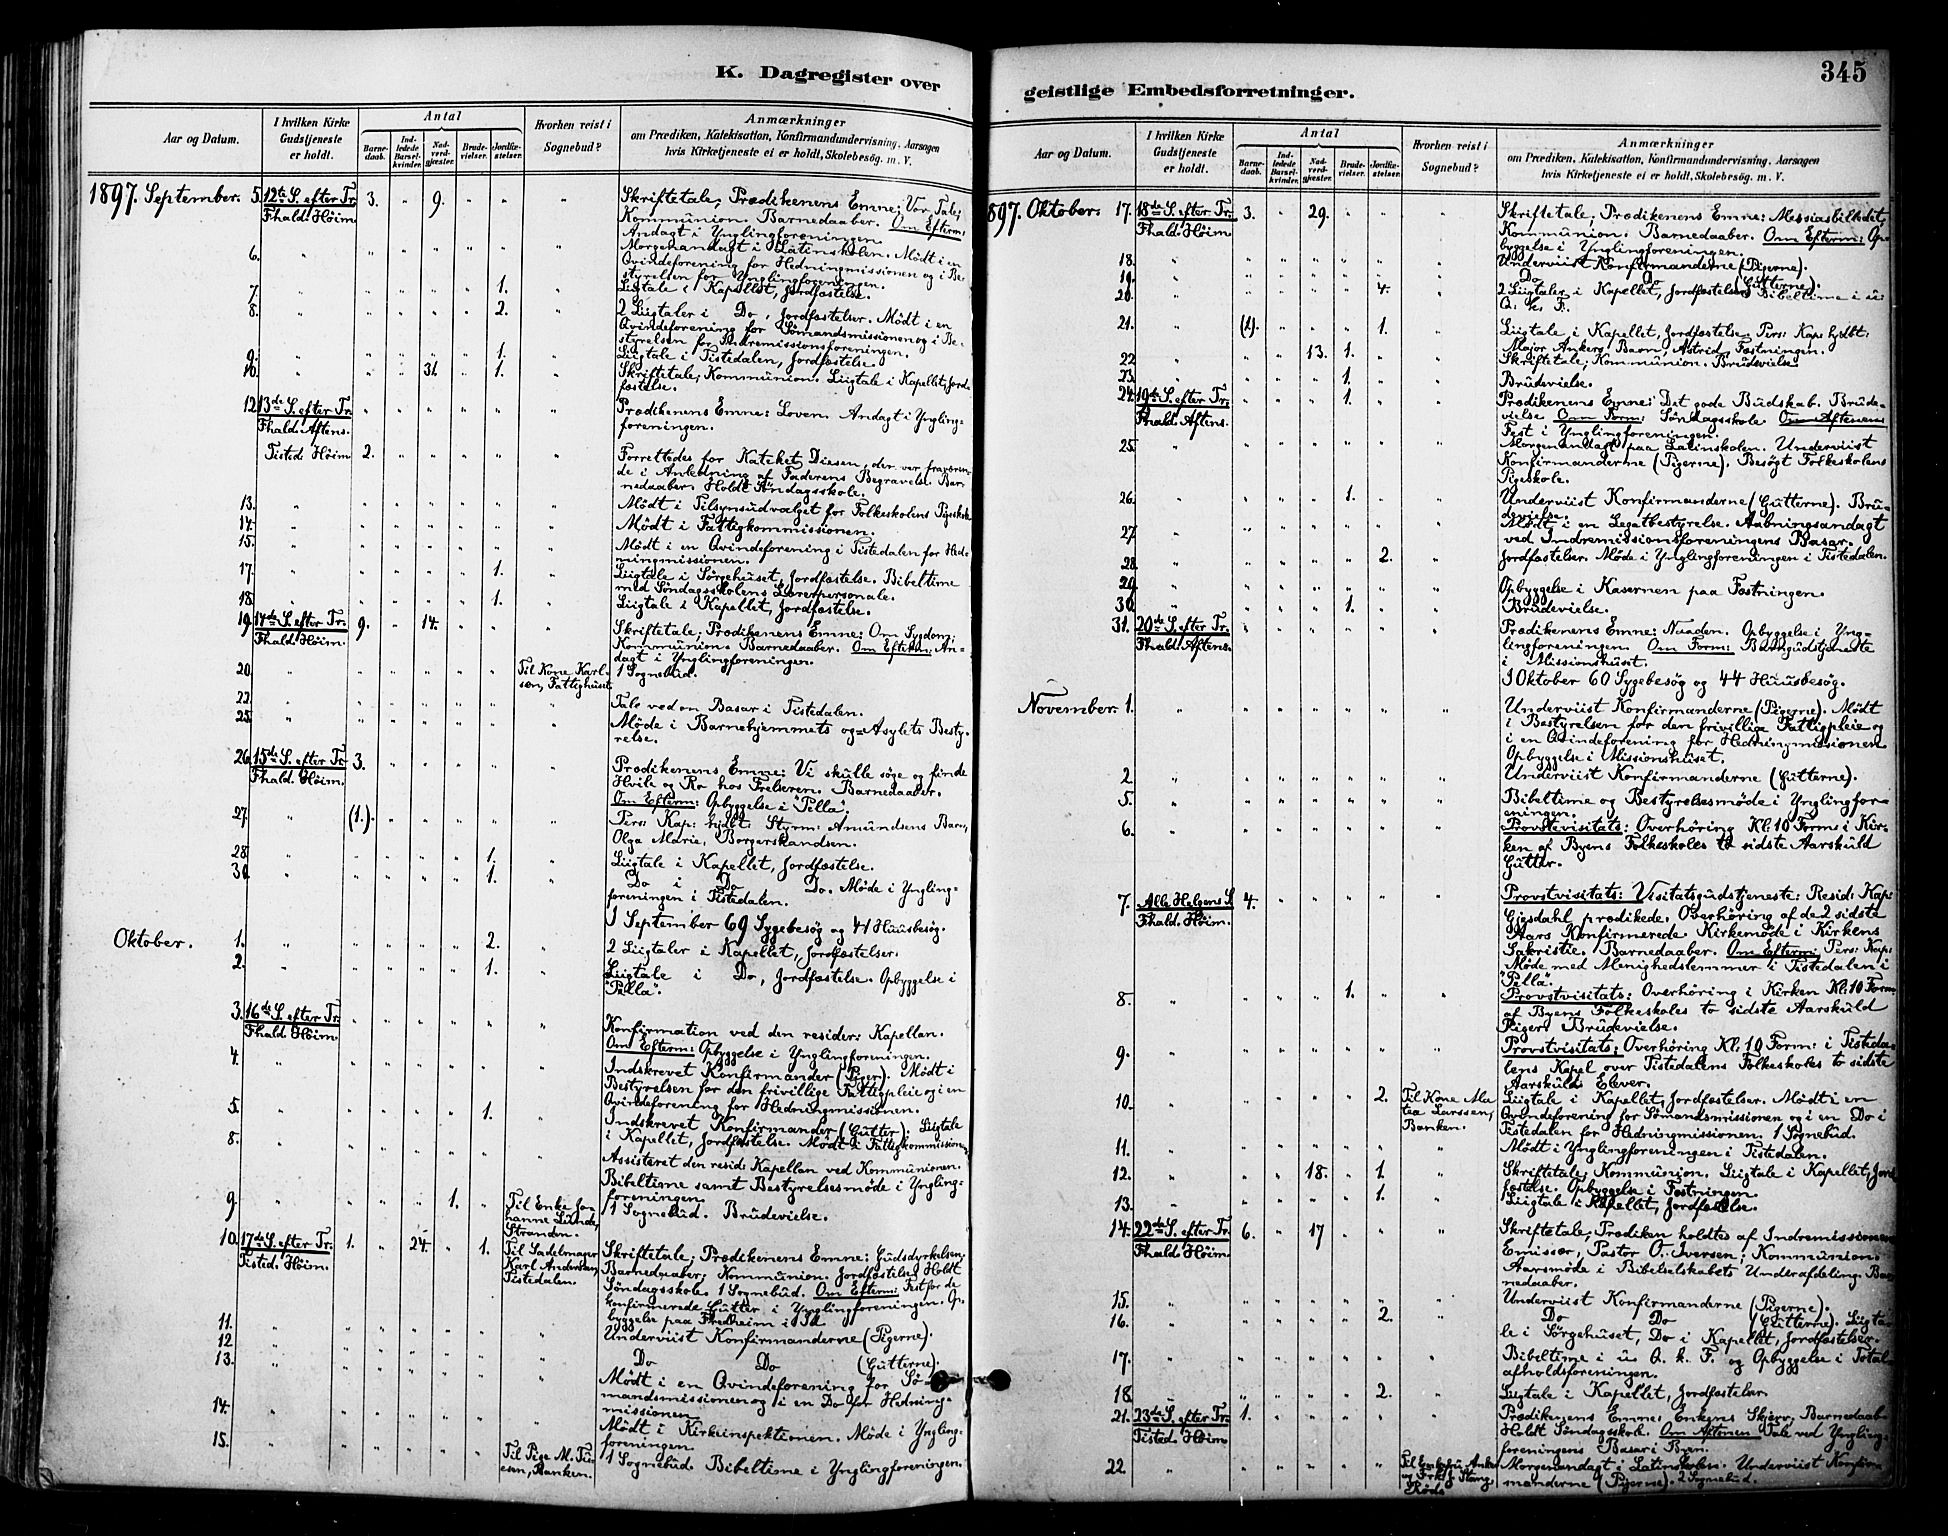 K. Dagregister over
Aar og Datum.
I hvilken Kirke Gudstjeneste er holdt.
Antal
Barnedaab.
Indledede Barselkvinder.
Nadverdgjester.
Brudevielser.
Jordfæstelser.
Hvorhen reist i Sognebud?
Anmærkninger
om Prædiken, Katekisation, Konfirmandundervisning, Aarsagen
hvis Kirketjeneste ei er holdt, Skolebesøg. m. V.
1897. September. 5. 12te S. efter Tr. 3. " 9. " " " Skriftetale; Prædikenens Emne: Vor Tale;
Fhald. Höim. Kommunion. Barnedaaber. Om Efterm:
Andagt i Ynglingforeningen.
6. " " " " " " " Morgenandagt i Latinskolen. Mødt i en
Qvindeforening for Hedningmissionen og i Be-
styrelsen for Ynglingforeningen.
7. " " " " " 1. " Liigtale i Kapellet, Jordfæstelse.
8. " " " " " 2. " 2 Liigtaler i Do, Jordfæstelser. Mødt i en
Qvindeforening for Sømandsmissionen og i Be-
styrelsen for Indremissionsforeningen.
9. " " " " " 1. " Liigtale i Tistedalen, Jordfæstelse.
10. " " " 31. " 1. " Skriftetale; Kommunion. Liigtale i Kapellet, Jord-
fæstelse.
12. 13de S. efter Tr. " " " " " " Prædikenens Emne: Loven. Andagt i Yngling-
Fhald. Aftens. foreningen.
Tisted. Höim 2. " " " " " Forrettedes for Kateket Diesen, der var fraværen-
de i Anledning af Faderens Begravelse. Bar-
nedaaber. Holdt Søndagsskole.
13. " " " " " " " Mødt i Tilsynsudvalget for Folkeskolens Pigeskole
14. " " " " " " " Mødt i Fattigkommissionen.
15. " " " " " " " Mødt i en Qvindeforening i Tistedalen for Hed-
ningmissionen.
17. " " " " " 1. " Liigtale i Sørgehuset, Jordfæstelse. Bibeltime
med Søndagsskolens Lærerpersonale.
18. " " " " " 1. " Liigtale i Kapellet, Jordfæstelse.
19. 14de S. efter Tr. 9. " 14. " " " Skriftetale; Prædikenens Emne: Om Sygdom;
Fhald. Höim. Kommunion. Barnedaaber. Om Efterm: An-
dagt i Ynglingforeningen.
20. " " " " " " Til Kone Karl- 1 Sognebud.
sen, Fattighuset.
22. " " " " " " " Tale ved en Basar i Tistedalen.
25. " " " " " " " Møde i Barnehjemmets og Asylets Besty-
relse.
26. 15de S. efter Tr. 3. " " " " " Prædikenens Emne: Vi skulle søge og finde
Fhald. Höim. Hvile og Ro hos Frelseren. Barnedaaber.
Om Efterm: Opbyggelse i "Pella".
27. " (1.) " " " " " Pers: Kap: hjdbt: Styrm: Amundsens Barn,
Olga Marie, Borgerskandsen.
28. " " " " " 1. " Liigtale i Kapellet, Jordfæstelse.
30. " " " " " 1. " Do i Do Do. Møde i Yngling-
foreningen i Tistedalen.
I September 69 Sygebesøg og 41 Huusbesøg.
Oktober. 1. " " " " " 2. " 2 Liigtaler i Kapellet, Jordfæstelser.
2. " " " " " 1. " Liigtale i Do, Jordfæstelse. Opbyggelse i
"Pella".
3. 16de S. efter Tr. " " " " " " Konfirmation ved den resider: Kapellan.
Fhald. Höim. Om Efterm: Opbyggelse i Ynglingforeningen.
4. " " " " " " " Indskrevet Konfirmander (Piger). Mødt i
Bestyrelsen for den frivillige Fattigpleie og i en
Qvindeforening for Hedningmissionen.
5. " " " " " 1. " Indskrevet Konfirmander (Gutter). Liigtale
i Kapellet, Jordfæstelse. Mødt i Fattigkommissionen
8. " " " " " " " Assisteret den resid: Kapellan ved Kommunionen.
Bibeltime samt Bestyrelsesmøde i Yngling-
foreningen.
9. " " " " 1. " Til Enke Jo- 1 Sognebud. Brudevielse.
hanne Lunde,
Stranden.
10. 17de S. efter Tr. 1. " 24. " 1. Til Sadelmager Skriftetale; Prædikenens Emne: Gudsdyrkelsen;
Tisted. Höim. Karl Andersen, Barnedaaber; Kommunion. Jordfæstelse. Holdt
Tistedalen. Søndagsskole. 1 Sognebud. Om Efterm: Fest for de
konfirmerede Gutter i Ynglingforeningen. Op-
byggelse paa Fredheim i Id.
11. " " " " " " " Underviist Konfirmanderne (Pigerne).
12 " " " " " " " Do Do (Gutterne).
13. " " " " " " " Mødt i en Qvindeforening for Sø-
mandsmissionen og i en Do for Hedning-
missionen
14. " " " " " " " Mødt i Kirkeinspektionen. Møde i Yngling-
foreningen.
15. " " " " " " Til Pige M. 1 Sognebud. Bibeltime i Ynglingforeningen.
Banken.
geistlige Embedsforretninger.
345
Aar og Datum.
I hvilken Kirke Gudstjeneste er holdt.
Antal
Barnedaab.
Indledede Barselkvinder.
Nadverdgjester.
Brudevielser.
Jordfæstelser.
Hvorhen reist i Sognebud?
Anmærkninger
om Prædiken, Katekisation, Konfirmandundervisning, Aarsagen
hvis Kirketjeneste ei er holdt, Skolebesøg. m. V.
897. Oktober. 17. 18de S. efter Tr. 3. " 29. " " " Skriftetale; Prædikenens Emne: Messiasbilledet;
Fhald. Höim Kommunion. Barnedaaber. Om Efterm: Op-
byggelse i Ynglingforeningen.
18. " " " " " " " Underviist Konfirmanderne (Pigerne).
19. " " " " " " " Do Do (Gutterne).
20. " " " " " 4. " 2 Liigtaler i Kapellet, Jordfæstelser. Bibeltime i u:
Q. k. F.
21. " (1). " " " 1. " Liigtale i Kapellet, Jordfæstelse. Pers: Kap: hjdbt:
Major Ankers Barn, Astrid, Fæstningen.
22 " " " 13. 1. " " Skriftetale; Kommunion. Brudevielse
23. " " " " 1. " " Brudevielse.
24. 19de S. efter Tr. " " " 1. " " Prædikenens Emne: Det gode Budskab. Brude-
Fhald. Aftens. vielse. Om Form: Søndagsskole. Om Aftenen:
Fest i Ynglingforeningen.
25. " " " " " " " Morgenandagt paa Latinskolen. Underviist
Konfirmanderne (Pigerne). Besøgt Folkeskolens
Pigeskole.
26. " " " " 1. " " Underviist Konfirmanderne (Gutterne). Bru-
devielse.
27 " " " " " " " Mødt i en Legatbestyrelse. Aabningsandagt
ved Indremissionsforeningens Basar.
28. " " " " " 2. " Jordfæstelser. Møde i Ynglingforeningen i Tistedalen.
29. " " " " " " " Opbyggelse i Kasernen paa Fæstningen.
30. " " " " 1. " " Brudevielse.
31. 20de S. efter Tr. " " " " " " Prædikenens Emne: Naaden. Opbyggelse i Yng-
Fhald. Aftens. lingforeningen. Om Form: Børnegudstjeneste
i Missionshuset.
I Oktober 60 Sygebesøg og 44 Huusbesøg.
November. 1. " " " " " " " Underviist Konfirmanderne (Pigerne). Mødt
i Bestyrelsen for den frivillige Fattigpleie og
i en Qvindeforening for Hedningmissionen
Opbyggelse i Missionshuset.
2. " " " " " " " Underviist Konfirmanderne (Gutterne).
5. " " " " " " " Bibeltime og Bestyrelsesmøde i Ynglingfor-
eningen.
6. " " " " " " " Provstevisitats: Overhøring Kl: 10 Form: i Kir-
ken af Byens Folkeskoles to sidste Aarskuld
Gutter.
7. Alle Helgens S. 4. " " " " " Provstvisitats: Visitatsgudstjeneste: Resid: Kap:
Fhald. Höim. Gjøsdahl prædikede. Overhøring af de 2 sidste
Aars Konfirmerede. Kirkemøde i Kirkens
Sakristie. Barnedaaber. Om Efterm: Pers: Kap:
Møde med Menighedslemmer i Tistedalen i
"Pella".
8. " " " " 1. " " Provstvisitats: Overhøring i Kirken Kl: 10 Form:
af Byens Folkeskoles to sidste Aarskuld
Piger. Brudevielse.
9. " " " " " " " Provstvisitats: Overhøring Kl: 10 Form: i Tisteda-
lens Kapel over Tistedalens Folkeskoles to sidste
Aarskulds Elever.
10. " " " " " 2. Til Kone Ma- Liigtale i Kapellet, Jordfæstelser. Mødt i en
tea Larssen, Qvindeforening for Sømandsmissionen og i en Do i
Banken. Tistedalen for Hedningmissionen. 1 Sognebud.
11. " " " " " " " Mødt i Ynglingforeningen i Tistedalen.
12. " " " 18. " 1. " Skriftetale; Kommunion. Liigtale i Kapellet, Jord-
fæstelse. Opbyggelse i Fæstningen.
13. " " " " " 1. " Liigtale i Kapellet, Jordfæstelse.
14. 22de S. efter Tr. 6. " 17 " " " Skriftetale; Prædiken holdtes af Indremissionens
Fhald. Höim Emissær, Pastor O. Iversen; Kommunion.
Aarsmøde i Bibelselskabets Underafdeling. Bar-
nedaaber.
15. " " " " " " " Underviist Konfirmanderne (Pigerne).
16. " " " " " 2. " Do Do (Gutterne). Liigta-
le i Sørgehuset, Do i Kapellet, Jordfæstelser.
17. " " " " " " " Bibeltime i u. Q. k. F. og Opbyggelse i Total-
afholdsforeningen.
18 " " " " " 2. " Liigtale i Kapellet, Jordfæstelser.
21. 23de S. efter Tr. 1. " " " " " Prædikenens Emne: Enkens Skjærv. Barnedaab.
Tisted. Höim Holdt Søndagsskole. Om Aftenen Tale ved Yngling-
foreningens Basar i Byen.
22. " " " " " " Til Enkefru Anker Morgenandagt i Latinskolen. Underviist Konfir-
og Frk. J. Stang, manderne (Pigerne). 2 Sognebud.
Røds